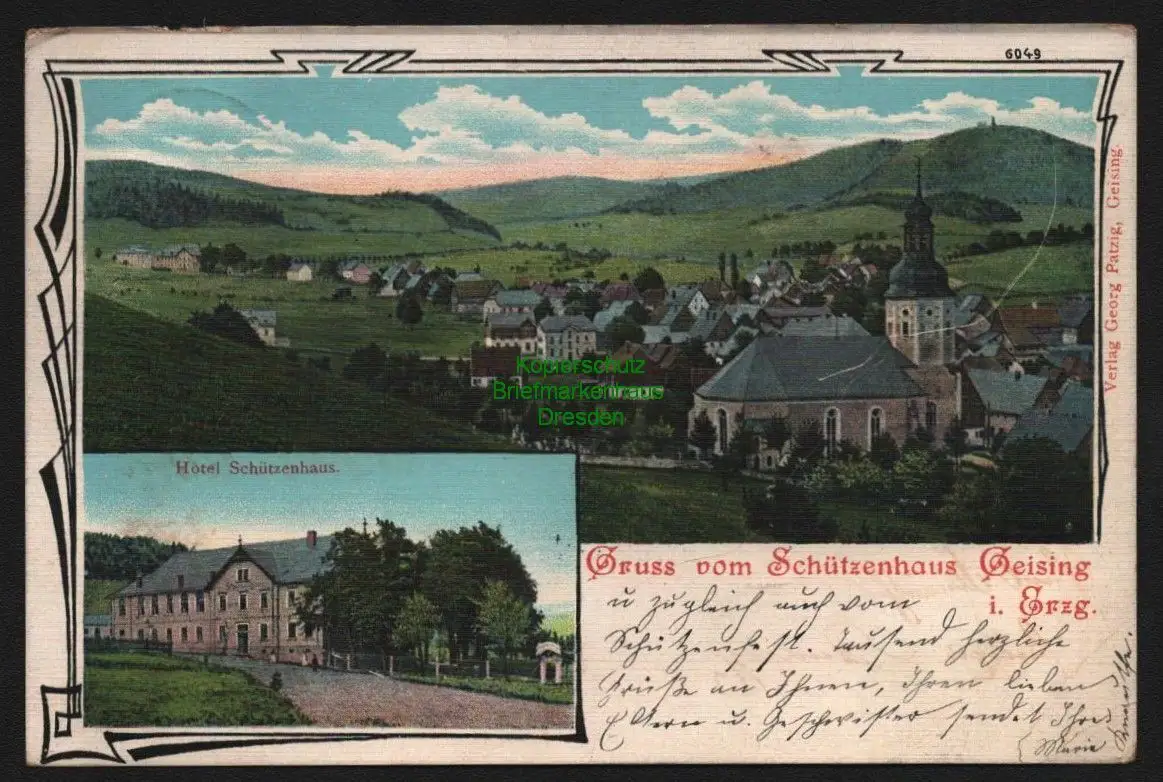 6049
Verlag Georg Patzig, Geising.
Kopierschutz
Briefmarkenhaus
Dresden
Hotel Schützenhaus.
Gruss vom Schützenhaus Geising
i. Erzg.
u zugleich auch vom
Schützenfest. Tausend herzliche
Grüße an Ihnen, Ihren lieben
Eltern u. Geschwister sendet Ihre
Marie